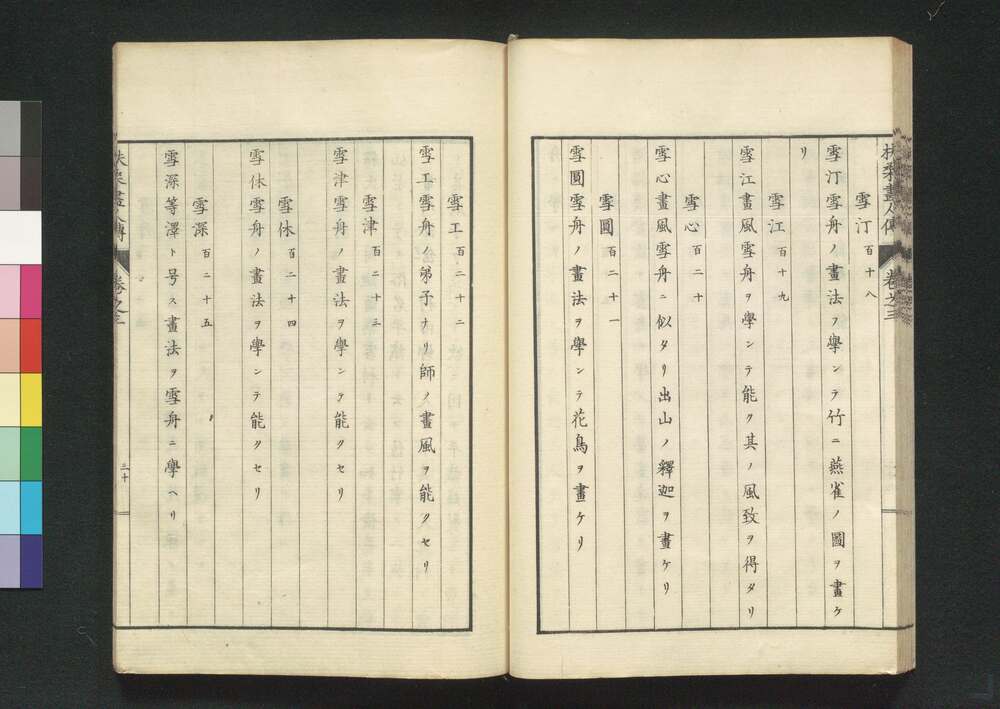 扶桑畫人傳 卷之三
雪汀 百十八
雪汀雪舟ノ畫法ヲ學ンテ竹ニ燕雀ノ圖ヲ畫ケ
リ
雪江 百十九
雪江畫風雪舟ヲ學ンテ能ク其ノ風致ヲ得タリ
雪心 百二十
雪心畫風雪舟ニ似タリ出山ノ釋迦ヲ畫ケリ
雪圓 百二十一
雪圓雪舟ノ畫法ヲ學ンテ花鳥ヲ畫ケリ
雪工 百二十二
雪工雪舟ノ弟子ナリ師ノ畫風ヲ能クセリ
雪津 百二十三
雪津雪舟ノ畫法ヲ學ンテ能クセリ
雪休 百二十四
雪休雪舟ノ畫法ヲ學ンテ能クセリ
雪深 百二十五
雪深等澤ト号ス畫法ヲ雪舟ニ學ヘリ
扶桑畫人傳 卷之三 三十